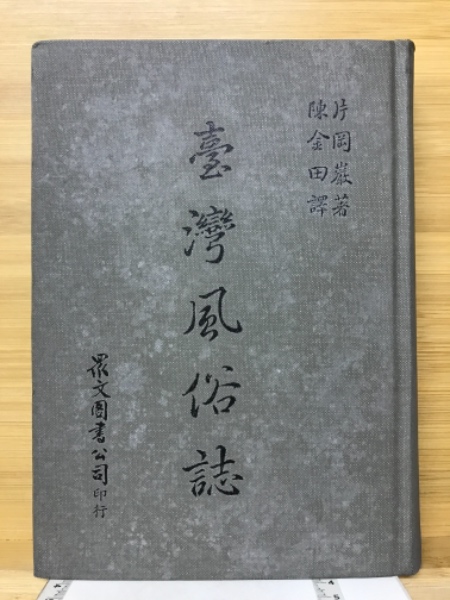 片岡巖著
陳金田譯
臺灣風俗誌
眾文圖書公司印行